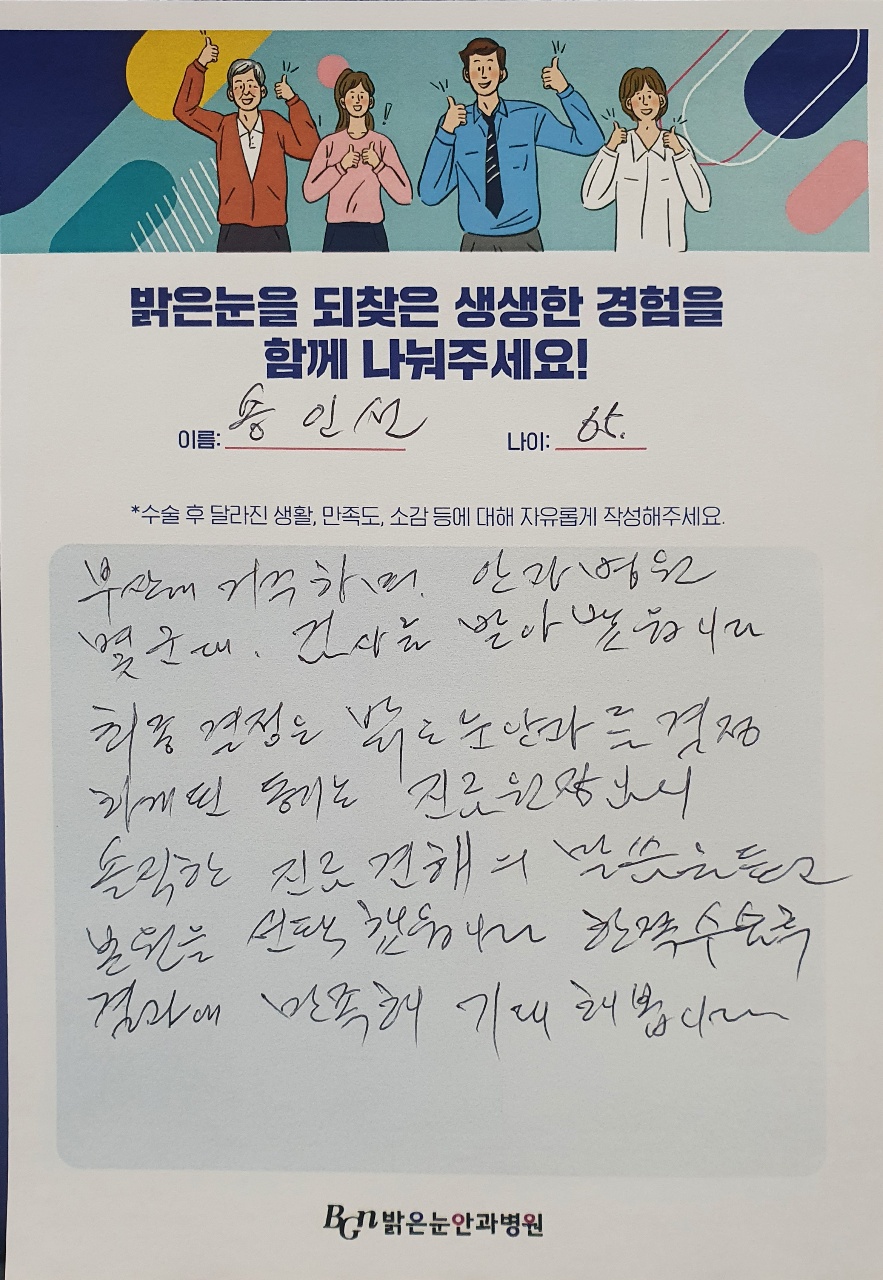 밝은눈을 되찾은 생생한 경험을
함께 나눠주세요!
이름: 용인선 나이: 65.
*수술 후 달라진 생활, 만족도, 소감 등에 대해 자유롭게 작성해주세요.
부산에 거주하며. 안과병원
몇군데. 검사를 받아 봤읍니다
최종 결정은 밝은눈안과를 결정
하게된 동기는 진료원장님
솔직한 진료 견해의 말씀을듣고
본원을 선택했읍니다 한쪽수술후
결과에 만족해 기대해봅니다
BGn밝은눈안과병원